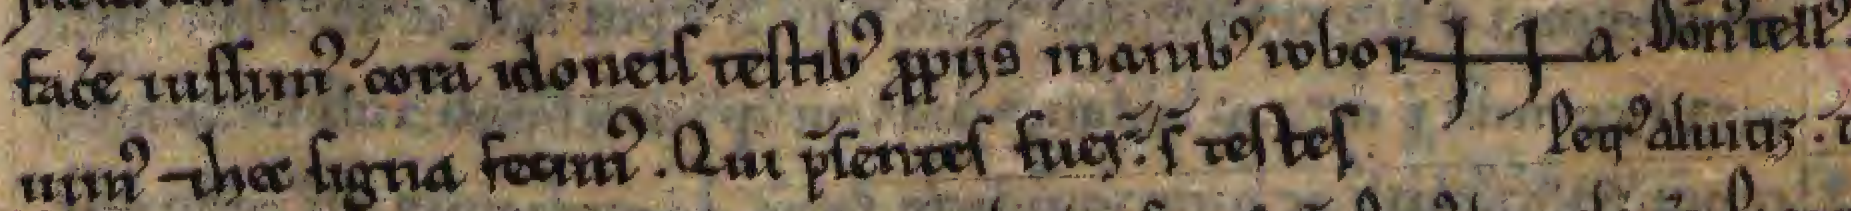 facẽ iussim᷒. corã idoneis testib᷒ ꝓpijs manib᷒ robor a. Don᷒ tell᷒.
uim᷒ ⁊ hec signa fecim᷒. Qui p̃sentes fuer̃. s̃ testes Peq᷒ aluitiz.